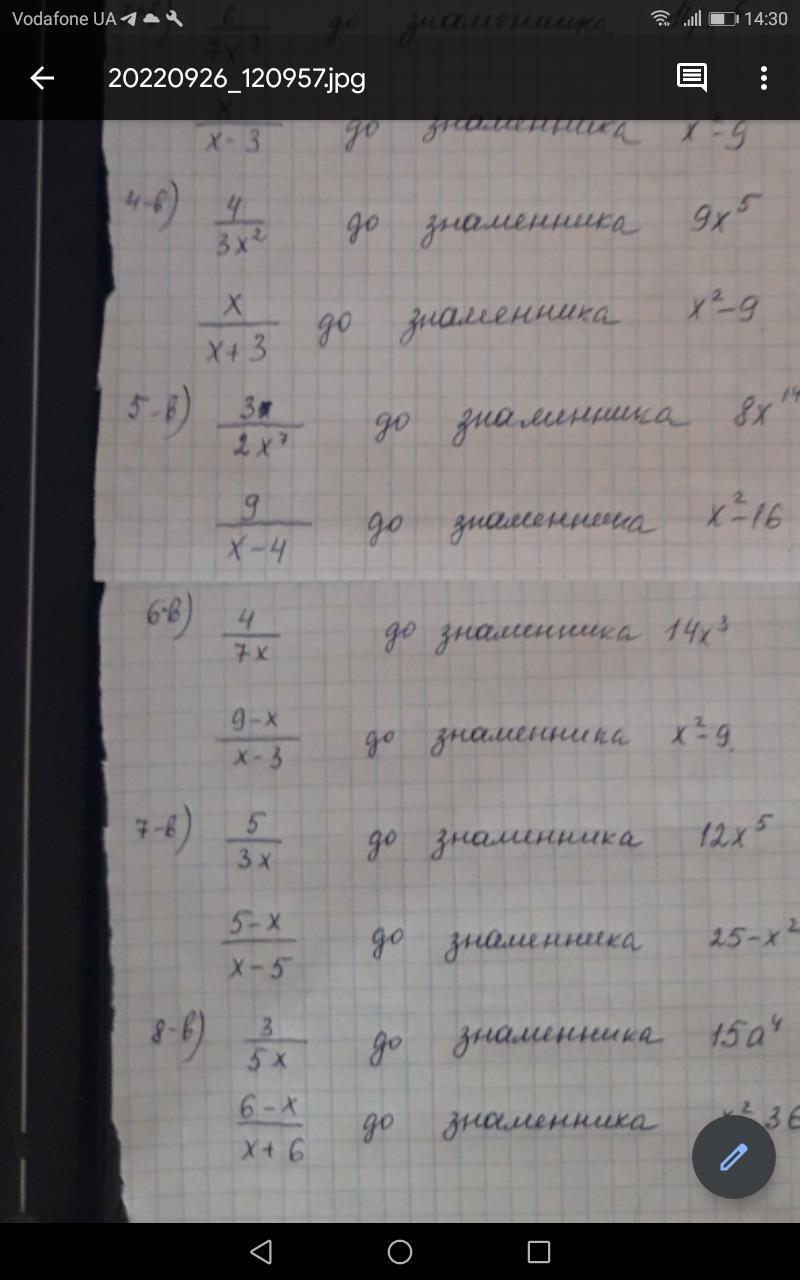 Vodafone UA 14:30
6/7x³ до знаменника
20220926_120957.jpg
x/(x-3) до знаменника x²-9
4-в) 4/(3x²) до знаменника 9x⁵
x/(x+3) до знаменника x²-9
5-в) 3/(2x⁷) до знаменника 8x¹⁴
9/(x-4) до знаменника x²-16
6-в) 4/(7x) до знаменника 14x³
(9-x)/(x-3) до знаменника x²-9
7-в) 5/(3x) до знаменника 12x⁵
(5-x)/(x-5) до знаменника 25-x²
8-в) 3/(5x) до знаменника 15a⁴
(6-x)/(x+6) до знаменника x² 36